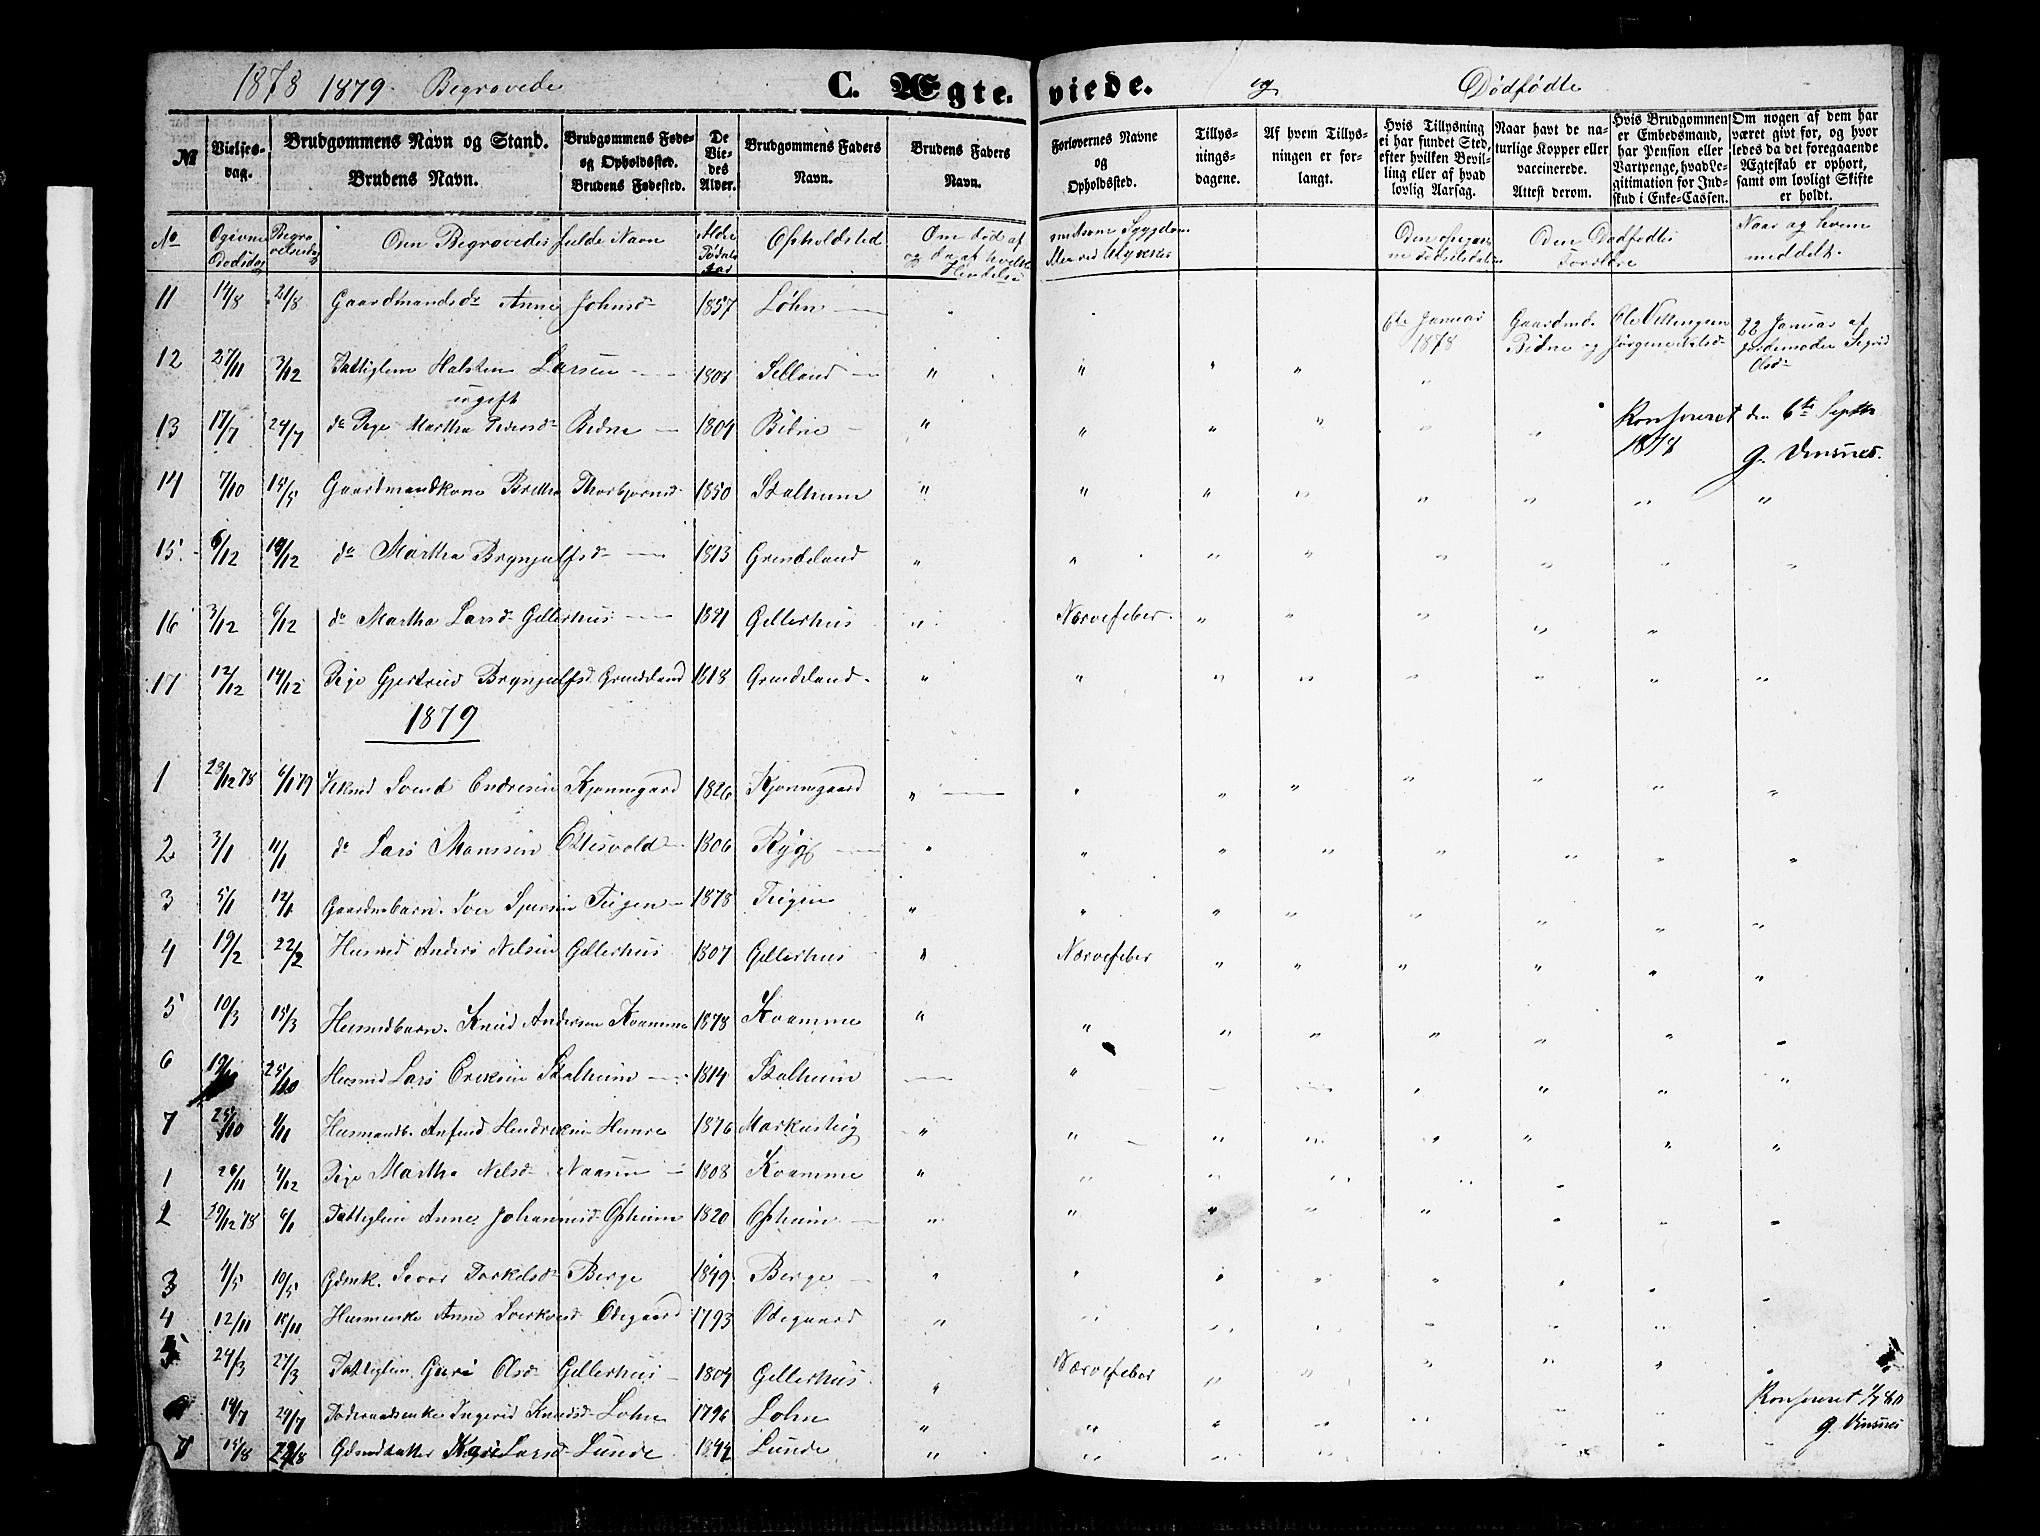 1878 1879. Begravede C. Ægte- viede. og Dødfødte
No Vielses-dag. Brudgommens Navn og Stand. Brudens Navn. Brudgommens Føde- og Opholdssted. Brudens Fødested. De Viedes Alder. Brudgommens Faders Navn. Brudens Faders Navn. Forlovernes Navne og Opholdssted. Tillysningsdagene. Af hvem Tillysningen er forlangt. Hvis Tillysning ei har fundet Sted, efter hvilken Bevilling eller af hvad lovlig Aarsag. Naar havt de naturlige Kopper eller vaccinerede. Attest derom. Hvis Brudgommen er Embedsmand, har Pension eller Vartpenge, hvad Legitimation for Indskud i Enke-Cassen. Om nogen af dem har været givt før, og hvorledes da det foregaaende Ægteskab er ophørt, samt om lovligt Skifte er holdt.
No Dødsdag Den Begravedes fulde Navn Opholdsted Om død af Den Dødfødtes Forældre Naar og hvem meddelt.
11 14/8 21/8 Gaardmandsdr Anne Johnsdr 1857 Løhn
6te Januar 1878 Gaardmd. Bidne og 22 Januar af Jordemoder Sigrid Olsdr
12 27/11 3/12 Fattiglem Halsten Larsen 1801 Selland " " " " "
ugift
13 17/7 24/7 do Pige Martha Pedersdr Bidne 1804 Bidne " " " " " "
Konfereret den 6te Septbr 1878 G. Vinsnes.
14 7/10 15/5 Gaardmandkone Brittha Thorbjørnsd 1850 Stalheim " " " " " " " "
15 6/12 14/12 do Martha Brynjulfsdr 1813 Grindeland " " " " " " " "
16 3/12 6/12 do Martha Larsdr Gillerhus 1821 Gillerhus " Nærvefeber. " " " " "
17 12/12 14/12 Pige Gjertrud Brynjulfsd. Grindeland 1818 Grindeland. " " " " " " " "
1879
1 23/12 78 6/1 79 Svend Endresen Kjønnegard 1826 Kjønnegaard " " " " " " "
2 3/1 11/1 do Lars Monssen 1806 Ryg " " " " " " " "
3 5/1 12/1 Gaardmbarn. Iver Sjursen Teigen 1878 Teigen " " " " " " " "
4 19/2 22/2 Husmd Anders Nelsen Gillerhus 1807 Gillerhus " Nærvefeber " " " " " "
5 10/3 15/3 Husmdbarn. Knud Andersen Kvamme 1878 Kvamme " " " " " " "
6 19/10 25/10 Husmd Lars Eriksen Stalheim 1814 Stalheim " " " " "
7 25/10 1/11 Husmandb. Anfind Hendriksen Hemre 1876 Markusteig " " " " " " " "
1 26/11 4/12 Pige Martha Nelsdr Naasen 1808 Kvamme " " " " "
2 29/12 78 6/1 Fattiglem Anne Johannesd Opheim 1820 Opheim " " " " "
3 4/5 10/5 Gdmk. Sevor Torkelsdr Berge 1849. Berge " " " " " "
4 12/11 15/11 Husmenke Anne Sverkvesd Ødegaard 1793 Ødegaard " " " " " "
5 24/3 27/3 Fattiglem Guri Olsdr Gillerhus 1804 Gillerhus " Nærvefeber " " " " "
14/7 24/7 Føderaadsenke Ingerid Knudsd Løhn 1796 Løhn " " " " "
Konfereret 1/7 80 G. Vinsnes
7 15/8 Gdmdatter Kari Larsd Lunde 1844 Lunde " " " " " "